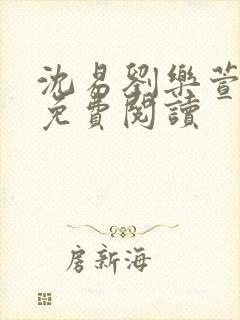 沈易劉樂萱
免費閱讀
房新海